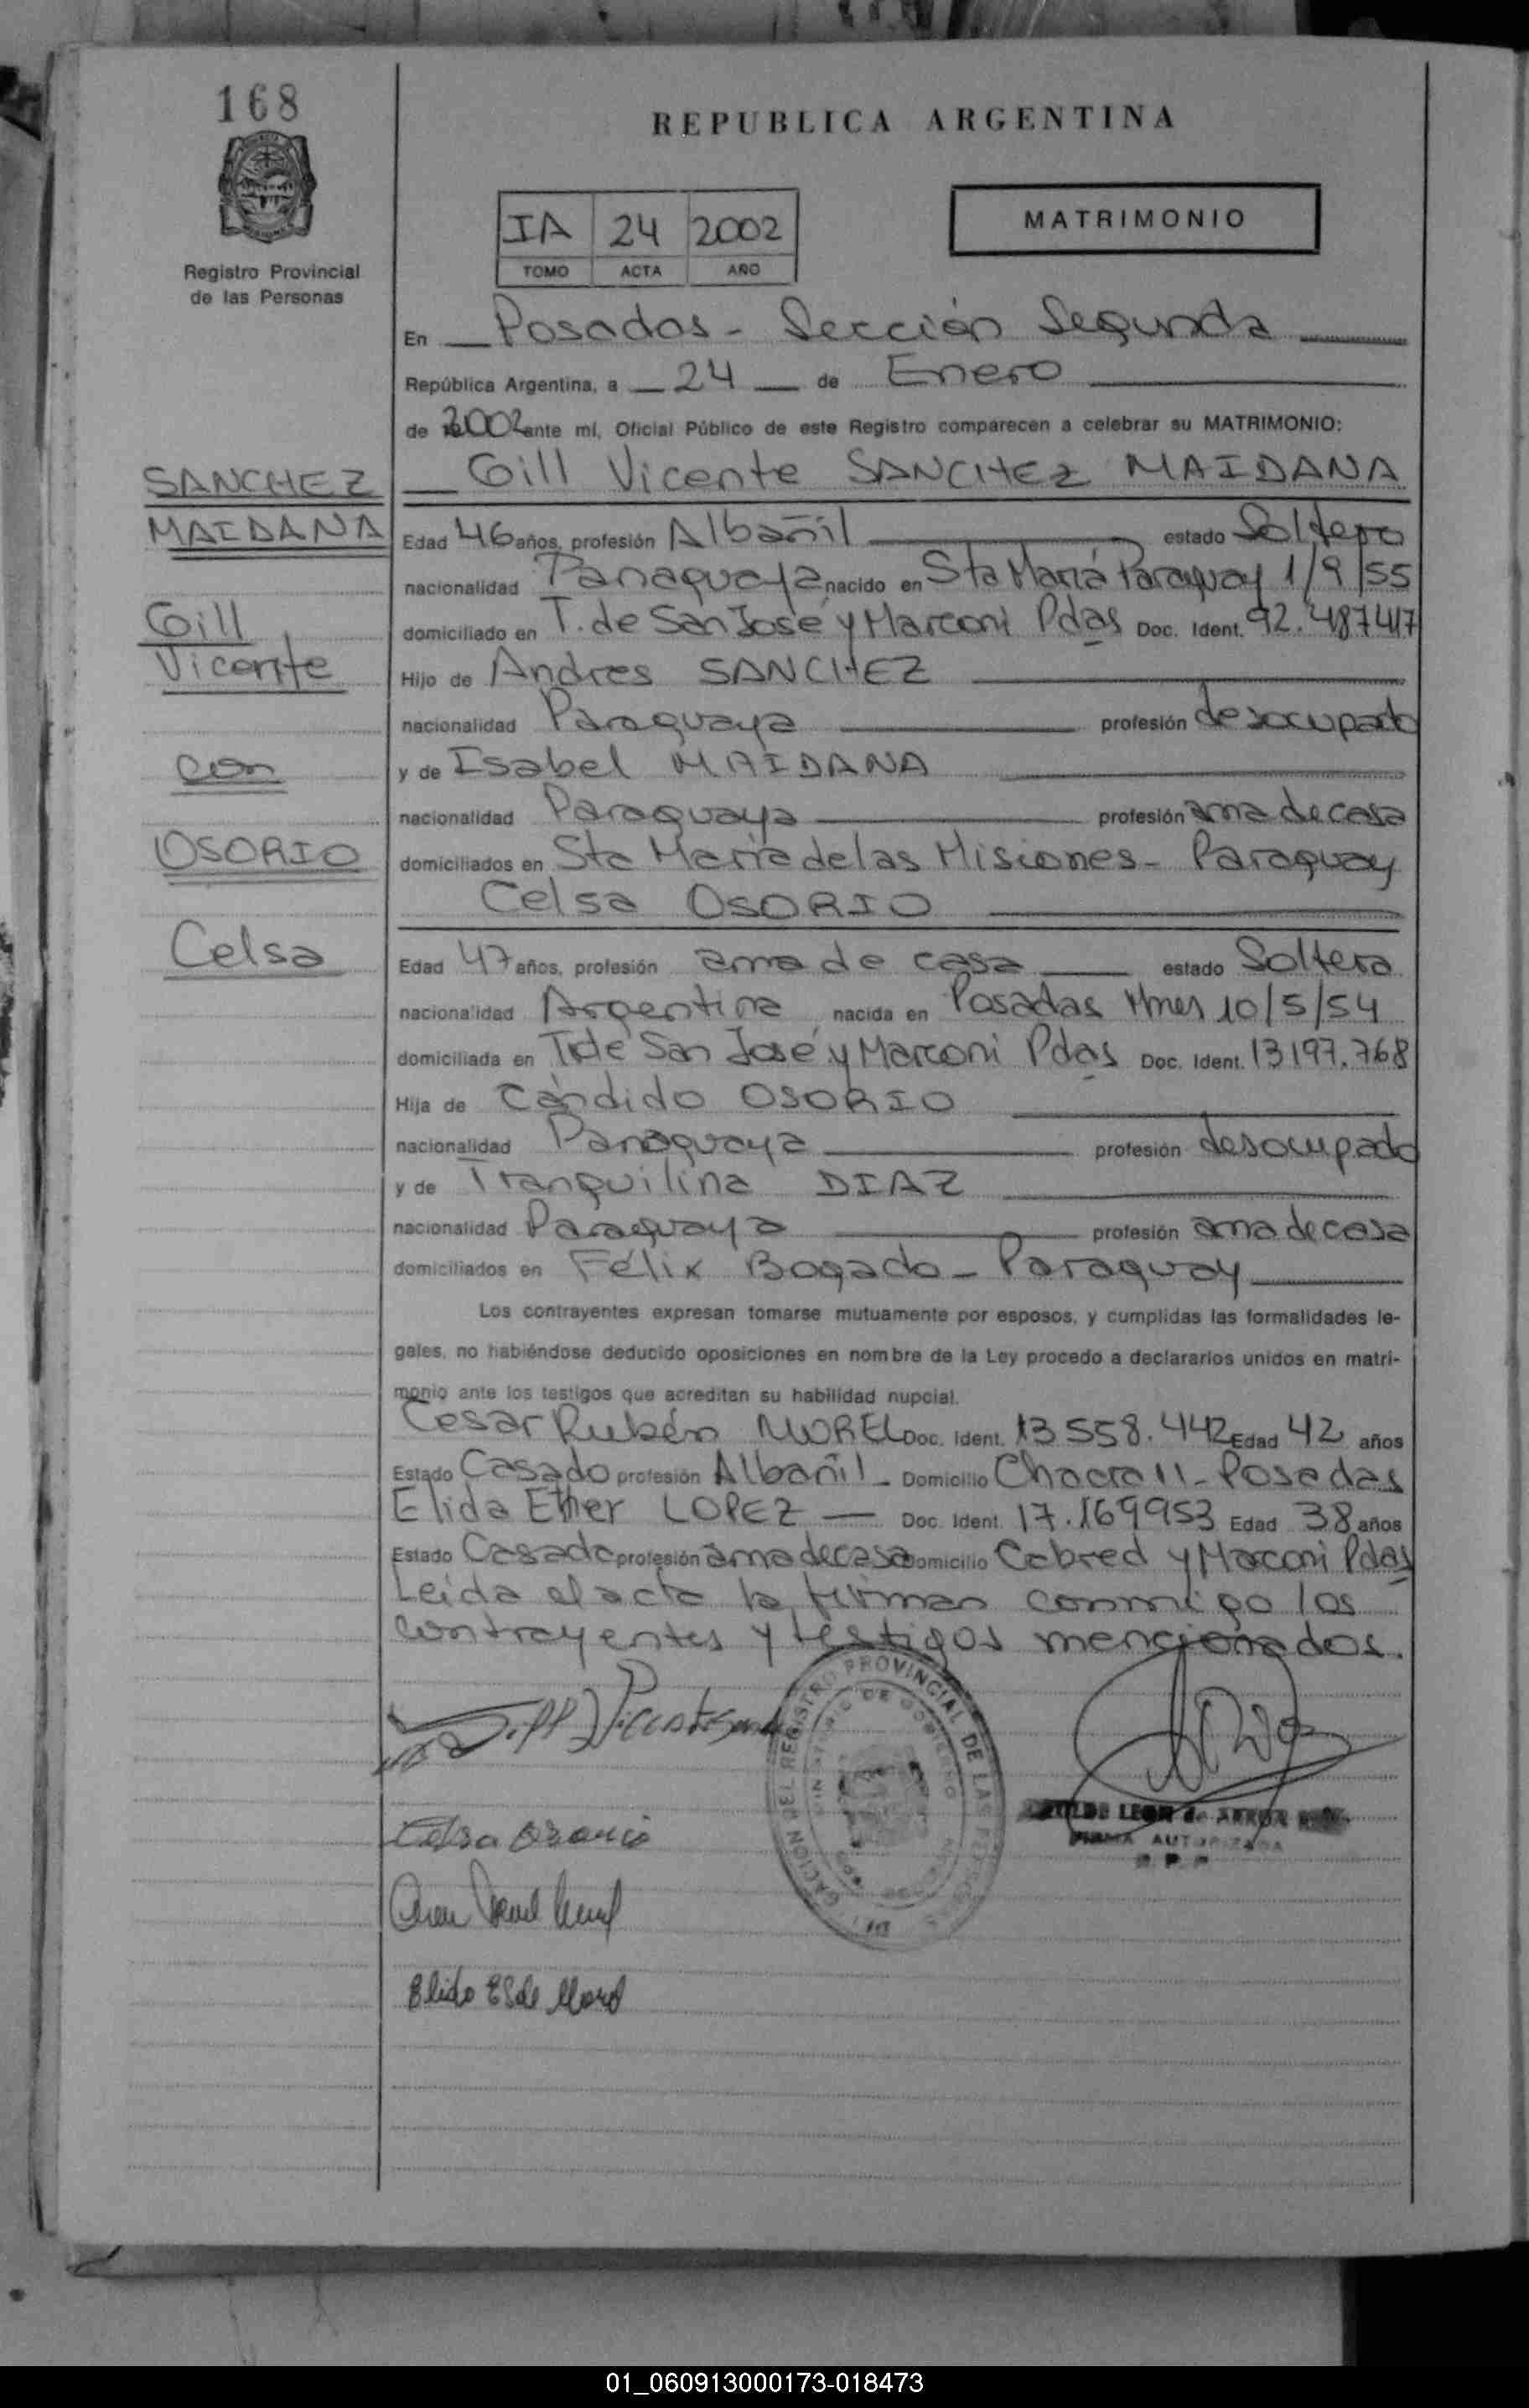 168
REPUBLICA ARGENTINA
IA 24 2002
TOMO ACTA AÑO
MATRIMONIO
Registro Provincial
de las Personas
En Posadas - Sección Segunda
República Argentina, a 24 de Enero
de 2002 ante mí, Oficial Público de este Registro comparecen a celebrar su MATRIMONIO:
SANCHEZ
MAIDANA
Gill
Vicente
con
OSORIO
Celsa
Gill Vicente SANCHEZ MAIDANA
Edad 46 años, profesión Albañil estado Soltero
nacionalidad Paraguaya nacido en Sta María Paraguay 1/9/55
domiciliado en T. de San José y Marconi Pdas Doc. Ident. 92.487417
Hijo de Andres SANCHEZ
nacionalidad Paraguaya profesión desocupado
y de Isabel MAIDANA
nacionalidad Paraguaya profesión ama de casa
domiciliados en Sta María de las Misiones - Paraguay
Celsa OSORIO
Edad 47 años, profesión ama de casa estado Soltera
nacionalidad Argentina nacida en Posadas Mnes 10/5/54
domiciliada en T. de San José y Marconi Pdas Doc. Ident. 13197.768
Hija de Cándido OSORIO
nacionalidad Paraguaya profesión desocupado
y de Tranquilina DIAZ
nacionalidad Paraguaya profesión ama de casa
domiciliados en Félix Bogado - Paraguay
Los contrayentes expresan tomarse mutuamente por esposos, y cumplidas las formalidades le-
gales, no habiéndose deducido oposiciones en nombre de la Ley procedo a declararlos unidos en matri-
monio ante los testigos que acreditan su habilidad nupcial.
Cesar Rubén MOREL Doc. Ident. 13558.442 Edad 42 años
Estado Casado profesión Albañil - Domicilio Chacra 11 - Posadas
Elida Ether LOPEZ — Doc. Ident. 17.169953 Edad 38 años
Estado Casada profesión ama de casa Domicilio Cabred y Marconi Pdas
Leída el acta la firman conmigo los
contrayentes y testigos mencionados.
REGISTRO PROVINCIAL DE LAS
Celsa Osorio
FIRMA AUTORIZADA
01_060913000173-018473